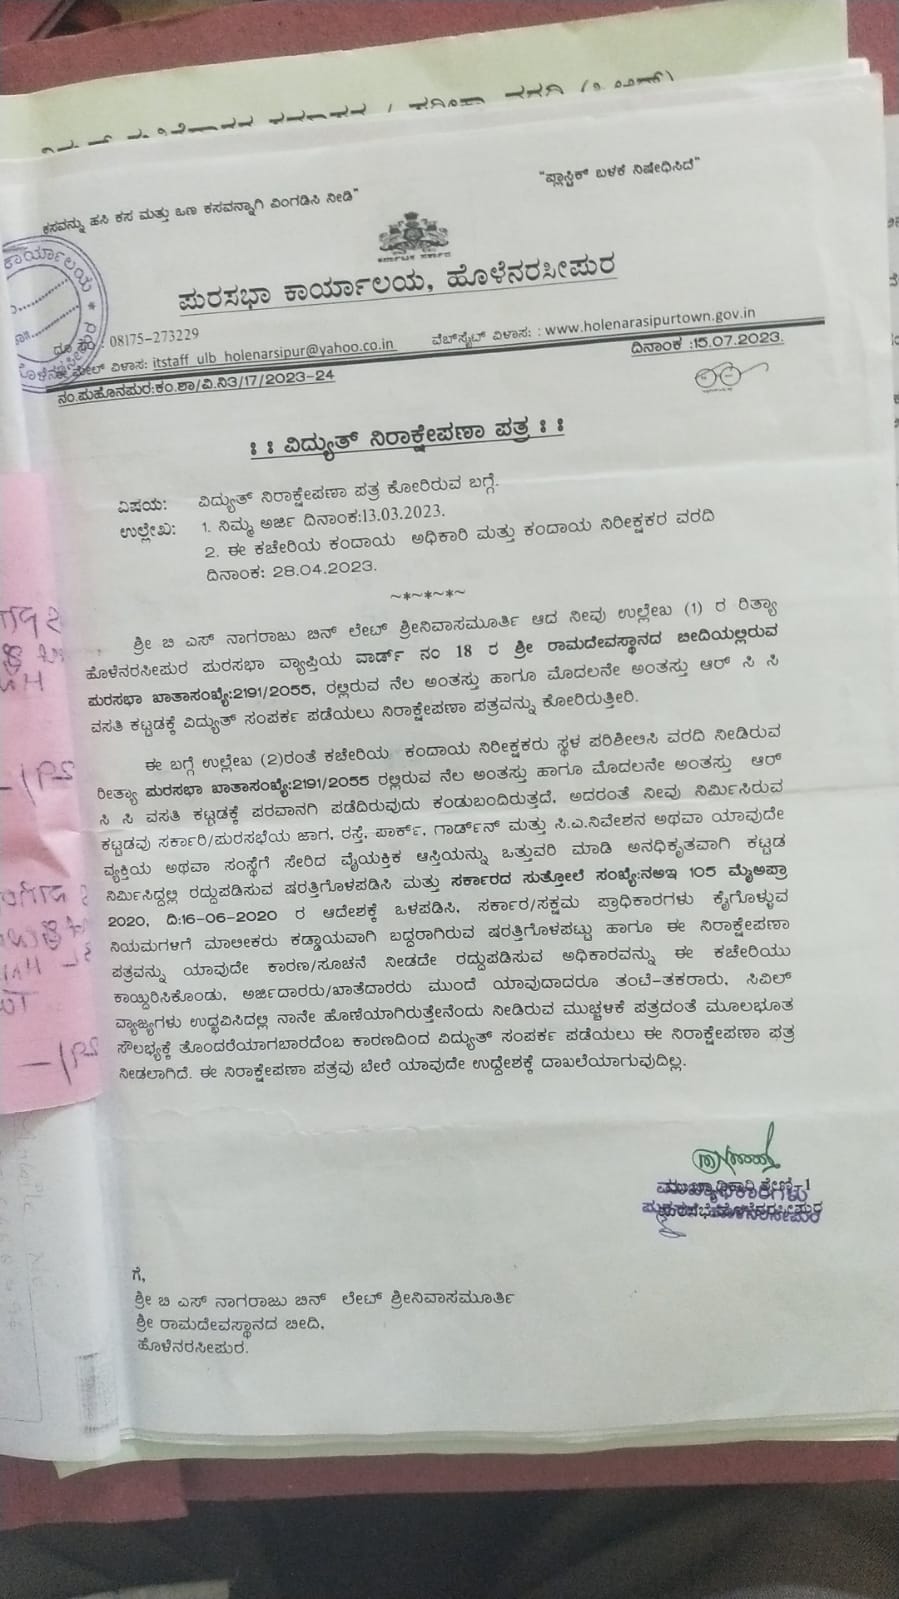 ಕಸವನ್ನು ಹಸಿ ಕಸ ಮತ್ತು ಒಣ ಕಸವನ್ನಾಗಿ ವಿಂಗಡಿಸಿ ನೀಡಿ"
"ಪ್ಲಾಸ್ಟಿಕ್ ಬಳಕೆ ನಿಷೇಧಿಸಿದೆ"
ಪುರಸಭಾ ಕಾರ್ಯಾಲಯ, ಹೊಳೆನರಸೀಪುರ
: 08175-273229
ಮೇಲ್ ವಿಳಾಸ: itstaff_ulb_holenarsipur@yahoo.co.in
ವೆಬ್‌ಸೈಟ್ ವಿಳಾಸ: : www.holenarasipurtown.gov.in
ನಂ.ಪುಹೊನಪುರ:ಕಂ.ಶಾ/ವಿ.ನಿ3/17/2023-24
ದಿನಾಂಕ :15.07.2023.
: : ವಿದ್ಯುತ್ ನಿರಾಕ್ಷೇಪಣಾ ಪತ್ರ : :
ವಿಷಯ: ವಿದ್ಯುತ್ ನಿರಾಕ್ಷೇಪಣಾ ಪತ್ರ ಕೋರಿರುವ ಬಗ್ಗೆ.
ಉಲ್ಲೇಖ: 1. ನಿಮ್ಮ ಅರ್ಜಿ ದಿನಾಂಕ:13.03.2023.
2. ಈ ಕಚೇರಿಯ ಕಂದಾಯ ಅಧಿಕಾರಿ ಮತ್ತು ಕಂದಾಯ ನಿರೀಕ್ಷಕರ ವರದಿ
ದಿನಾಂಕ: 28.04.2023.
~*~*~*~
ಶ್ರೀ ಬಿ ಎಸ್ ನಾಗರಾಜು ಬಿನ್ ಲೇಟ್ ಶ್ರೀನಿವಾಸಮೂರ್ತಿ ಆದ ನೀವು ಉಲ್ಲೇಖ (1) ರ ರಿತ್ಯಾ
ಹೊಳೆನರಸೀಪುರ ಪುರಸಭಾ ವ್ಯಾಪ್ತಿಯ ವಾರ್ಡ್ ನಂ 18 ರ ಶ್ರೀ ರಾಮದೇವಸ್ಥಾನದ ಬೀದಿಯಲ್ಲಿರುವ
ಪುರಸಭಾ ಖಾತಾಸಂಖ್ಯೆ:2191/2055, ರಲ್ಲಿರುವ ನೆಲ ಅಂತಸ್ತು ಹಾಗೂ ಮೊದಲನೇ ಅಂತಸ್ತು ಆರ್ ಸಿ ಸಿ
ವಸತಿ ಕಟ್ಟಡಕ್ಕೆ ವಿದ್ಯುತ್ ಸಂಪರ್ಕ ಪಡೆಯಲು ನಿರಾಕ್ಷೇಪಣಾ ಪತ್ರವನ್ನು ಕೋರಿರುತ್ತೀರಿ.
ಈ ಬಗ್ಗೆ ಉಲ್ಲೇಖ (2)ರಂತೆ ಕಚೇರಿಯ ಕಂದಾಯ ನಿರೀಕ್ಷಕರು ಸ್ಥಳ ಪರಿಶೀಲಿಸಿ ವರದಿ ನೀಡಿರುವ
ರೀತ್ಯಾ ಪುರಸಭಾ ಖಾತಾಸಂಖ್ಯೆ:2191/2055 ರಲ್ಲಿರುವ ನೆಲ ಅಂತಸ್ತು ಹಾಗೂ ಮೊದಲನೇ ಅಂತಸ್ತು ಆರ್
ಸಿ ಸಿ ವಸತಿ ಕಟ್ಟಡಕ್ಕೆ ಪರವಾನಗಿ ಪಡೆದಿರುವುದು ಕಂಡುಬಂದಿರುತ್ತದೆ, ಅದರಂತೆ ನೀವು ನಿರ್ಮಿಸಿರುವ
ಕಟ್ಟಡವು ಸರ್ಕಾರಿ/ಪುರಸಭೆಯ ಜಾಗ, ರಸ್ತೆ, ಪಾರ್ಕ್, ಗಾರ್ಡ್‌ನ್ ಮತ್ತು ಸಿ.ಎ.ನಿವೇಶನ ಅಥವಾ ಯಾವುದೇ
ವ್ಯಕ್ತಿಯ ಅಥವಾ ಸಂಸ್ಥೆಗೆ ಸೇರಿದ ವೈಯಕ್ತಿಕ ಆಸ್ತಿಯನ್ನು ಒತ್ತುವರಿ ಮಾಡಿ ಅನಧಿಕೃತವಾಗಿ ಕಟ್ಟಡ
ನಿರ್ಮಿಸಿದ್ದಲ್ಲಿ ರದ್ದುಪಡಿಸುವ ಷರತ್ತಿಗೊಳಪಡಿಸಿ ಮತ್ತು ಸರ್ಕಾರದ ಸುತ್ತೋಲೆ ಸಂಖ್ಯೆ:ನಅಇ 105 ಮೈಅಪ್ರಾ
2020, ದಿ:16-06-2020 ರ ಆದೇಶಕ್ಕೆ ಒಳಪಡಿಸಿ, ಸರ್ಕಾರ/ಸಕ್ಷಮ ಪ್ರಾಧಿಕಾರಗಳು ಕೈಗೊಳ್ಳುವ
ನಿಯಮಗಳಗೆ ಮಾಲೀಕರು ಕಡ್ಡಾಯವಾಗಿ ಬದ್ದರಾಗಿರುವ ಷರತ್ತಿಗೊಳಪಟ್ಟು ಹಾಗೂ ಈ ನಿರಾಕ್ಷೇಪಣಾ
ಪತ್ರವನ್ನು ಯಾವುದೇ ಕಾರಣ/ಸೂಚನೆ ನೀಡದೇ ರದ್ದುಪಡಿಸುವ ಅಧಿಕಾರವನ್ನು ಈ ಕಚೇರಿಯು
ಕಾಯ್ದಿರಿಸಿಕೊಂಡು, ಅರ್ಜಿದಾರರು/ಖಾತೆದಾರರು ಮುಂದೆ ಯಾವುದಾದರೂ ತಂಟೆ-ತಕರಾರು, ಸಿವಿಲ್
ವ್ಯಾಜ್ಯಗಳು ಉದ್ಭವಿಸಿದಲ್ಲಿ ನಾನೇ ಹೊಣೆಯಾಗಿರುತ್ತೇನೆಂದು ನೀಡಿರುವ ಮುಚ್ಚಳಿಕೆ ಪತ್ರದಂತೆ ಮೂಲಭೂತ
ಸೌಲಭ್ಯಕ್ಕೆ ತೊಂದರೆಯಾಗಬಾರದೆಂಬ ಕಾರಣದಿಂದ ವಿದ್ಯುತ್ ಸಂಪರ್ಕ ಪಡೆಯಲು ಈ ನಿರಾಕ್ಷೇಪಣಾ ಪತ್ರ
ನೀಡಲಾಗಿದೆ. ಈ ನಿರಾಕ್ಷೇಪಣಾ ಪತ್ರವು ಬೇರೆ ಯಾವುದೇ ಉದ್ದೇಶಕ್ಕೆ ದಾಖಲೆಯಾಗುವುದಿಲ್ಲ.
ಗೆ,
ಶ್ರೀ ಬಿ ಎಸ್ ನಾಗರಾಜು ಬಿನ್ ಲೇಟ್ ಶ್ರೀನಿವಾಸಮೂರ್ತಿ
ಶ್ರೀ ರಾಮದೇವಸ್ಥಾನದ ಬೀದಿ,
ಹೊಳೆನರಸೀಪುರ.